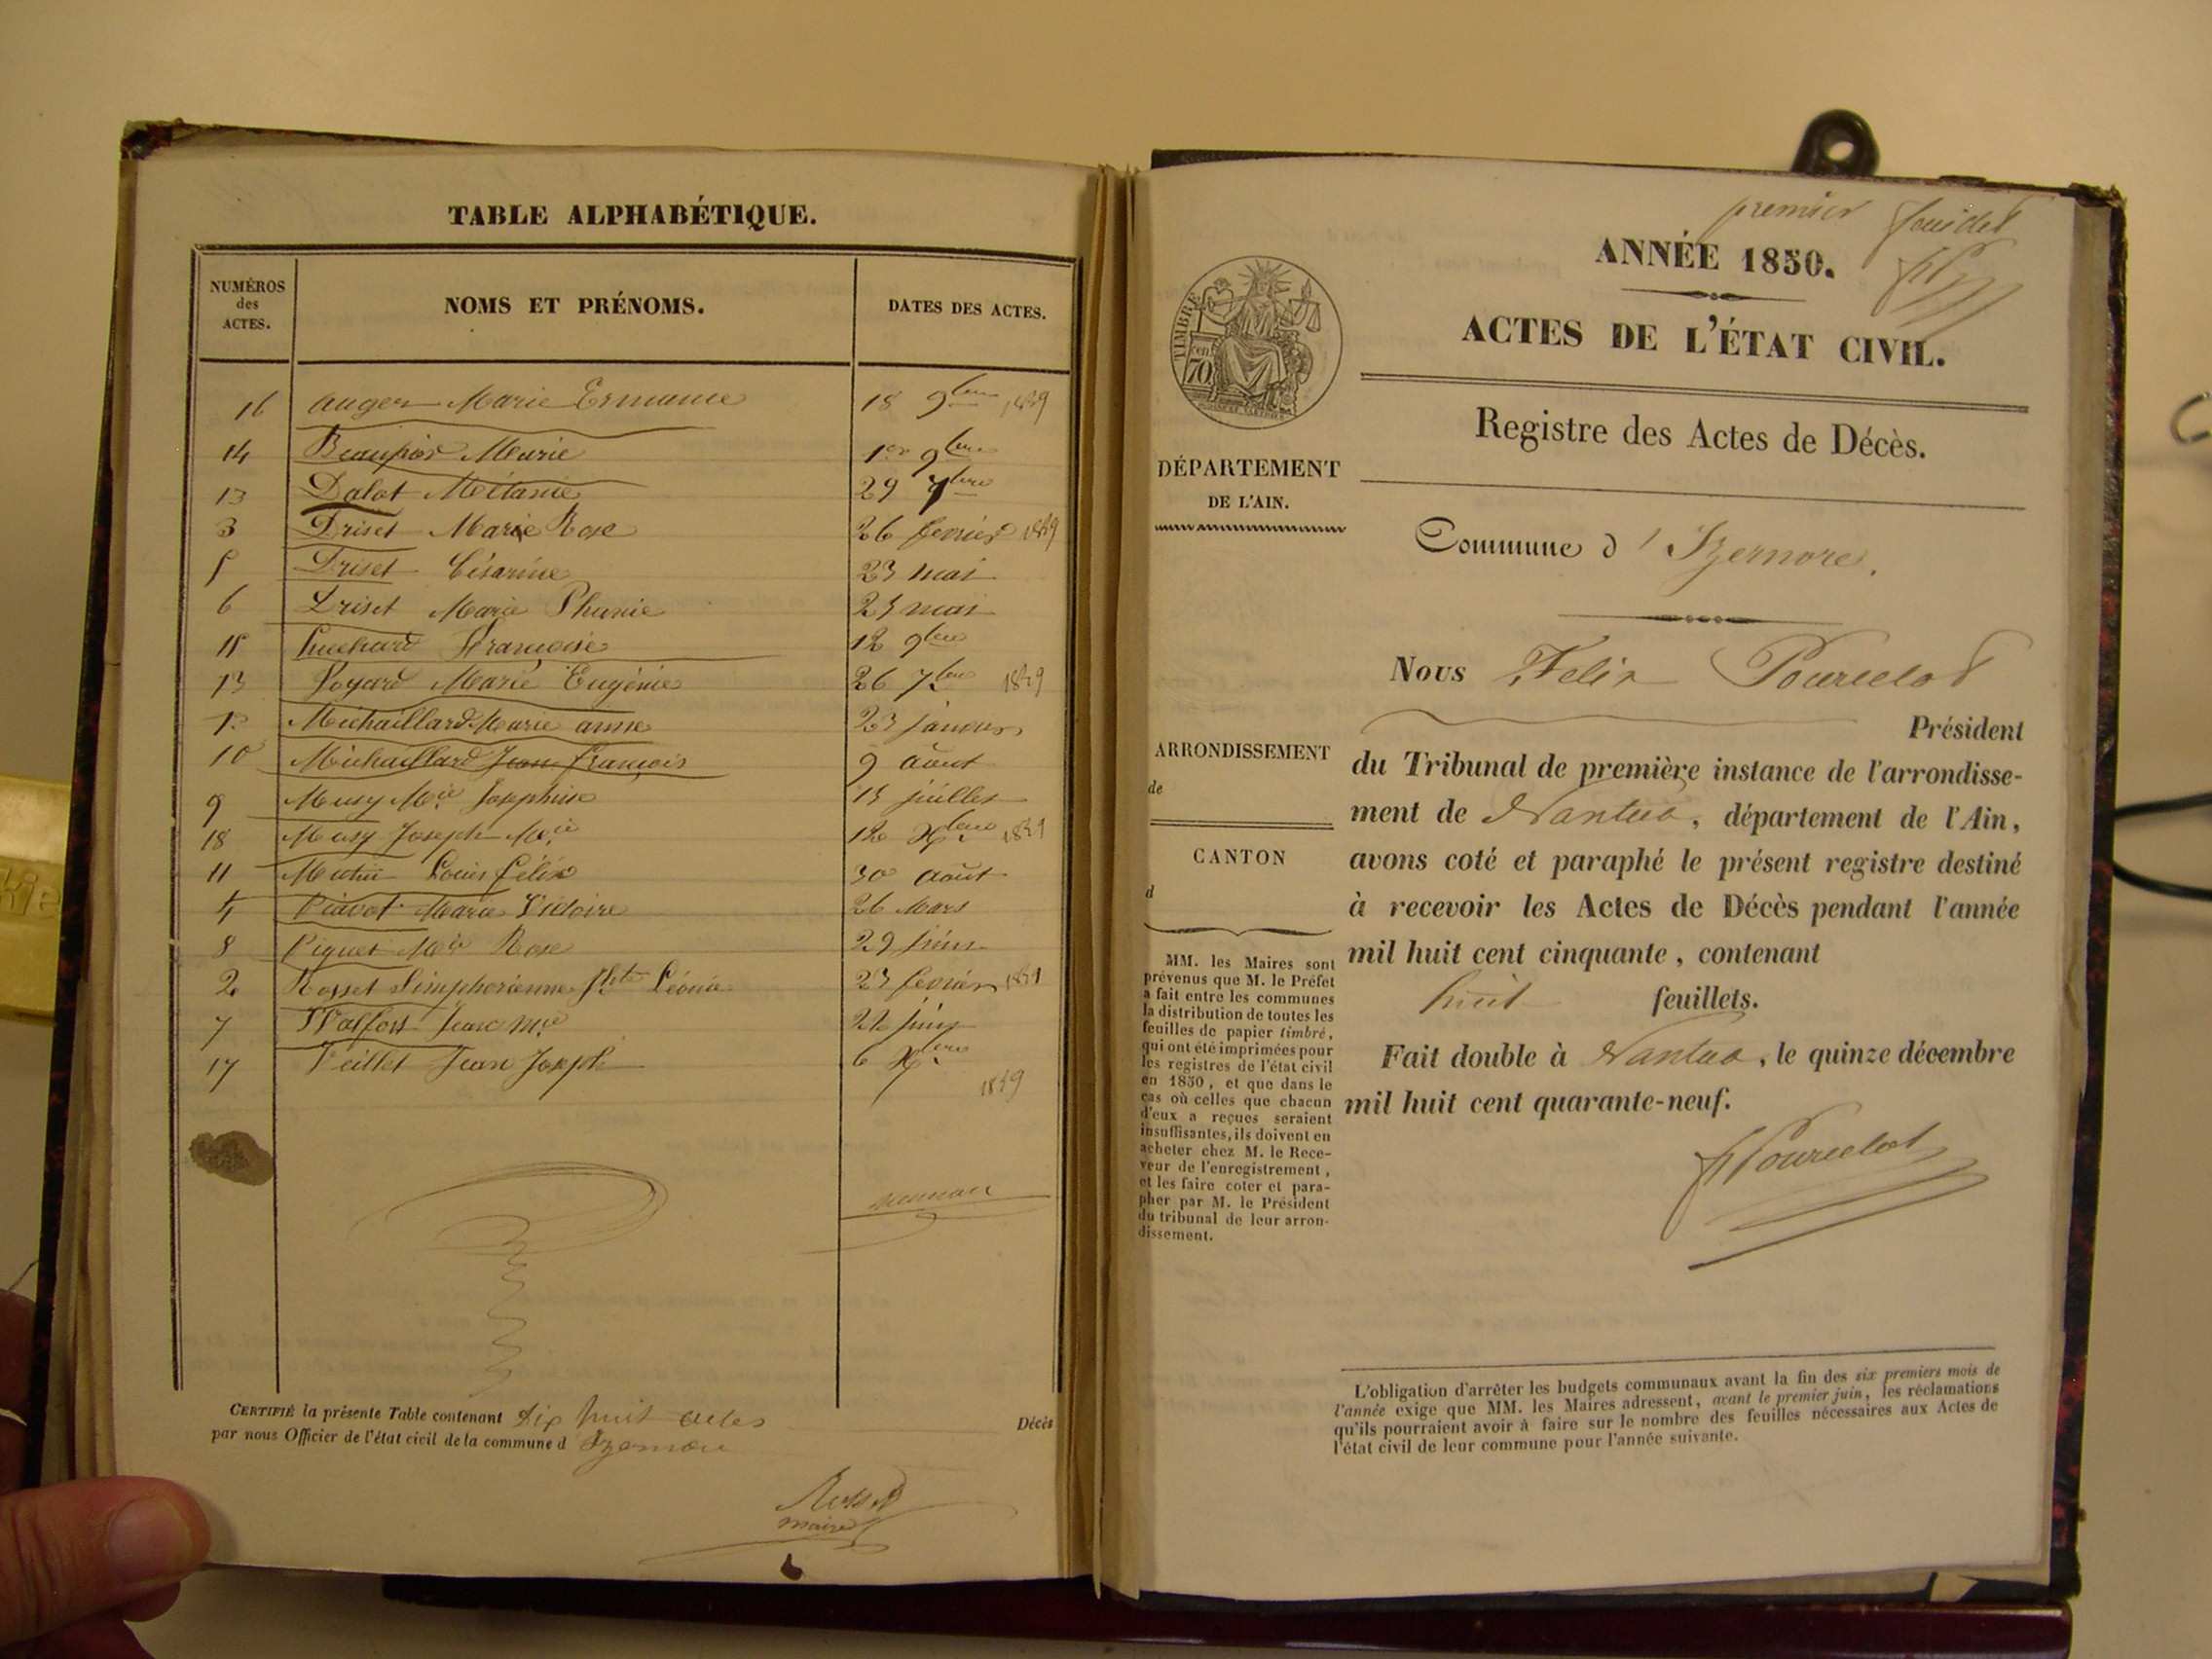 TABLE ALPHABÉTIQUE.
NUMÉROS des ACTES. NOMS ET PRÉNOMS. DATES DES ACTES.
16 auger Marie Ermance 18 9bre 1849
14 Beaupied Marie 1er 9bre
13 Dalot Mélanie 29 7bre
3 Driset Marie Rose 26 fevrier 1849
5 Driset Césarine 23 mai
6 Driset Marie 23 mai
15 Françoise 12 9bre
13 Marie Eugénie 26 7bre 1849
1er Michaillard Marie anne 23 janvier
10 Michaillard Jean françois 9 août
9 Musy Mie Josephine 15 juillet
18 Musy Joseph Mie 12 Xbre 1849
11 Louis félix 30 août
4 Marie Victoire 26 Mars
8 Piquet Mie Rose 29 juin
2 Rosset Simphorienne Léonie 23 fevrier 1849
7 Jean Mie 22 juin
17 Veillet Jean Joseph 6 Xbre
1849
CERTIFIÉ la présente Table contenant dix huit actes Décès
par nous Officier de l'état civil de la commune d Izernore
Rosset
maire
premier feuillet
ANNÉE 1850.
ACTES DE L'ÉTAT CIVIL.
TIMBRE
en
70
Registre des Actes de Décès.
DÉPARTEMENT
DE L'AIN.
Commune d'Izernore.
Nous Felix Pourcelot
Président
du Tribunal de première instance de l'arrondisse-
ment de Nantua, département de l'Ain,
avons coté et paraphé le présent registre destiné
à recevoir les Actes de Décès pendant l'année
mil huit cent cinquante, contenant
huit feuillets.
Fait double à Nantua, le quinze décembre
mil huit cent quarante-neuf.
fPourcelot
ARRONDISSEMENT
de
CANTON
d
MM. les Maires sont
prévenus que M. le Préfet
a fait entre les communes
la distribution de toutes les
feuilles de papier timbré,
qui ont été imprimées pour
les registres de l'état civil
en 1850, et que dans le
cas où celles que chacun
d'eux a reçues seraient
insuffisantes, ils doivent en
acheter chez M. le Rece-
veur de l'enregistrement,
et les faire coter et para-
pher par M. le Président
du tribunal de leur arron-
dissement.
L'obligation d'arrêter les budgets communaux avant la fin des six premiers mois de
l'année exige que MM. les Maires adressent, avant le premier juin, les réclamations
qu'ils pourraient avoir à faire sur le nombre des feuilles nécessaires aux Actes de
l'état civil de leur commune pour l'année suivante.